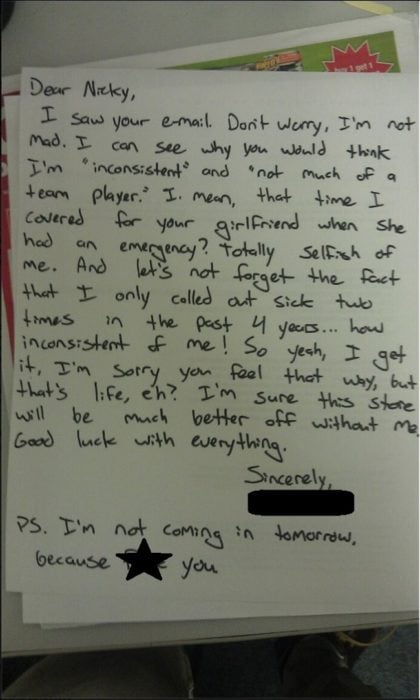 buy 1 get 1
Dear Nicky,
I saw your e-mail. Don't worry, I'm not
mad. I can see why you would think
I'm "inconsistent" and "not much of a
team player." I mean, that time I
covered for your girlfriend when she
had an emergency? Totally selfish of
me. And let's not forget the fact
that I only called out sick two
times in the past 4 years... how
inconsistent of me! So yeah, I get
it, I'm sorry you feel that way, but
that's life, eh? I'm sure this store
will be much better off without me.
Good luck with everything.
Sincerely,
PS. I'm not coming in tomorrow,
because you